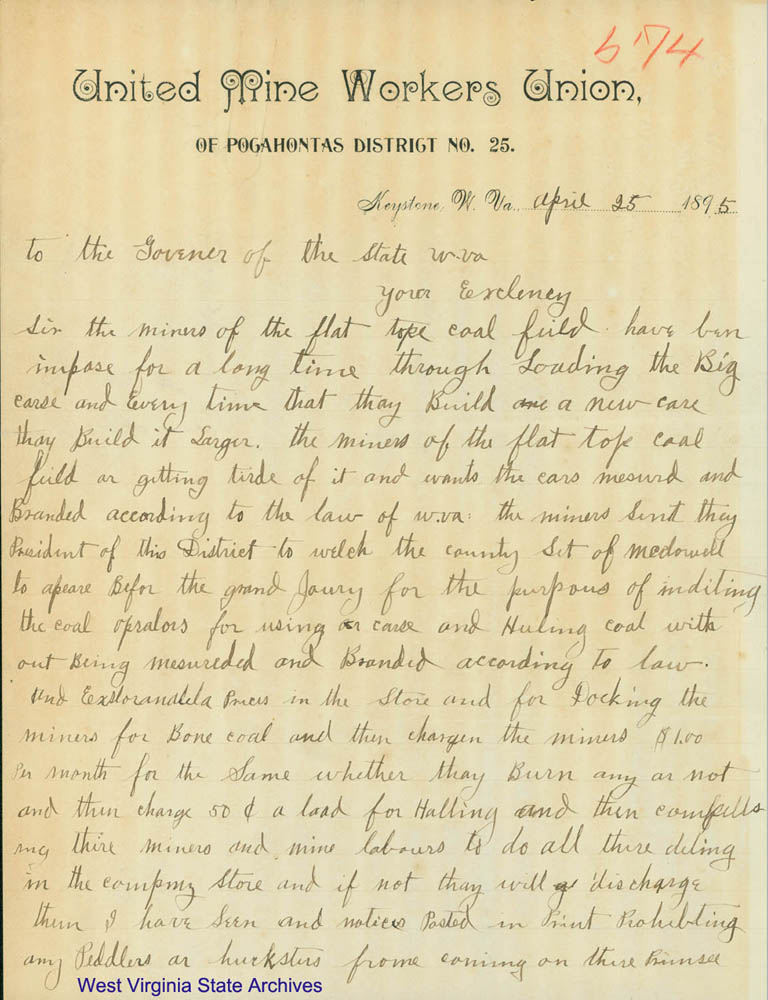 6174
United Mine Workers Union,
OF POCAHONTAS DISTRICT NO. 25.
Keystone, W. Va., april 25 1895
to the Govener of the State w.va
your Exclency
Sir the miners of the flat tope coal fuild have ben
impose for a long time through Loading the Big
carse and Every time that thay Build one a new care
thay Build it Larger. the miners of the flat top coal
fuild ar gitting tirde of it and wants the cars mesurd and
Branded according to the law of w.va: the miners Sent they
President of this District to welch the county Set of mcdowell
to apeare Befor the grand Joury for the purpous of inditing
the coal oprators for using carse and Huling coal with
out Being mesureded and Branded according to law.
and Prices in the Store and for Docking the
miners for Bone coal and then chargen the miners $1.00
Per month for the Same whether thay Burn any ar not
and then charge 50 ¢ a load for Halling and then compells
ing thire miners and mine labours to do all there deling
in the compmy Store and if not thay will discharge
them I have Seen and notices Posted in Print Prohibting
any Peddlers ar hucksters frome coming on there Primsee
West Virginia State Archives